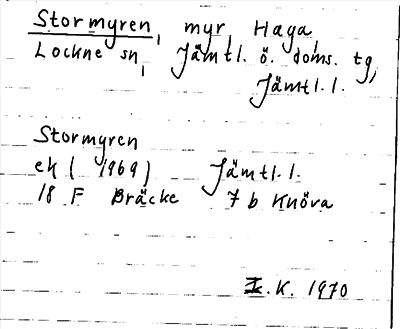 Stormyren, myr, Haga,
Lockne sn, Jämtl. ö. doms. tg,
Jämtl. l.
Stormyren
ek ( 1969) Jämtl. l.
18 F Bräcke 7 b Knöva
I. K. 1970